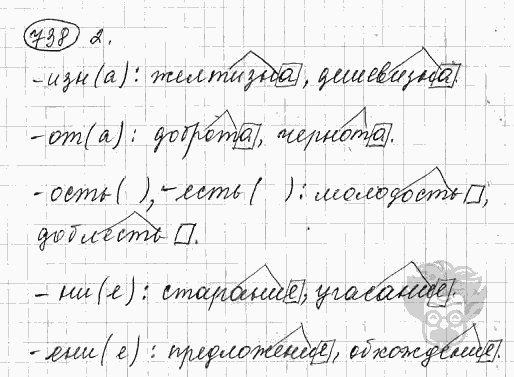 738 2.
-изн(а): желтизна, дешевизна.
-от(а): доброта, чернота.
-ость( ), -есть( ): молодость,
доблесть.
-ни(е): старание, угасание.
-ени(е): предложение, обхождение.